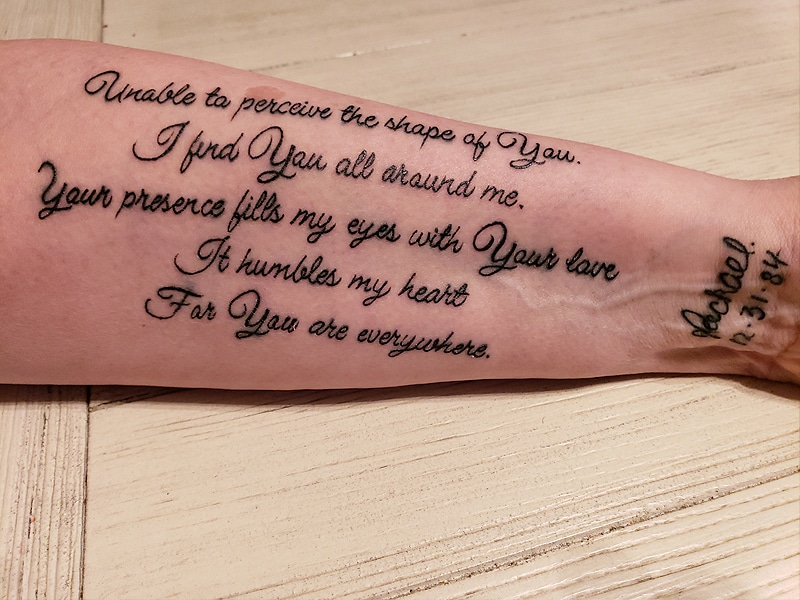 Unable to perceive the shape of You.
I find You all around me.
Your presence fills my eyes with Your love
It humbles my heart
For You are everywhere.
Rachael.
12-31-84